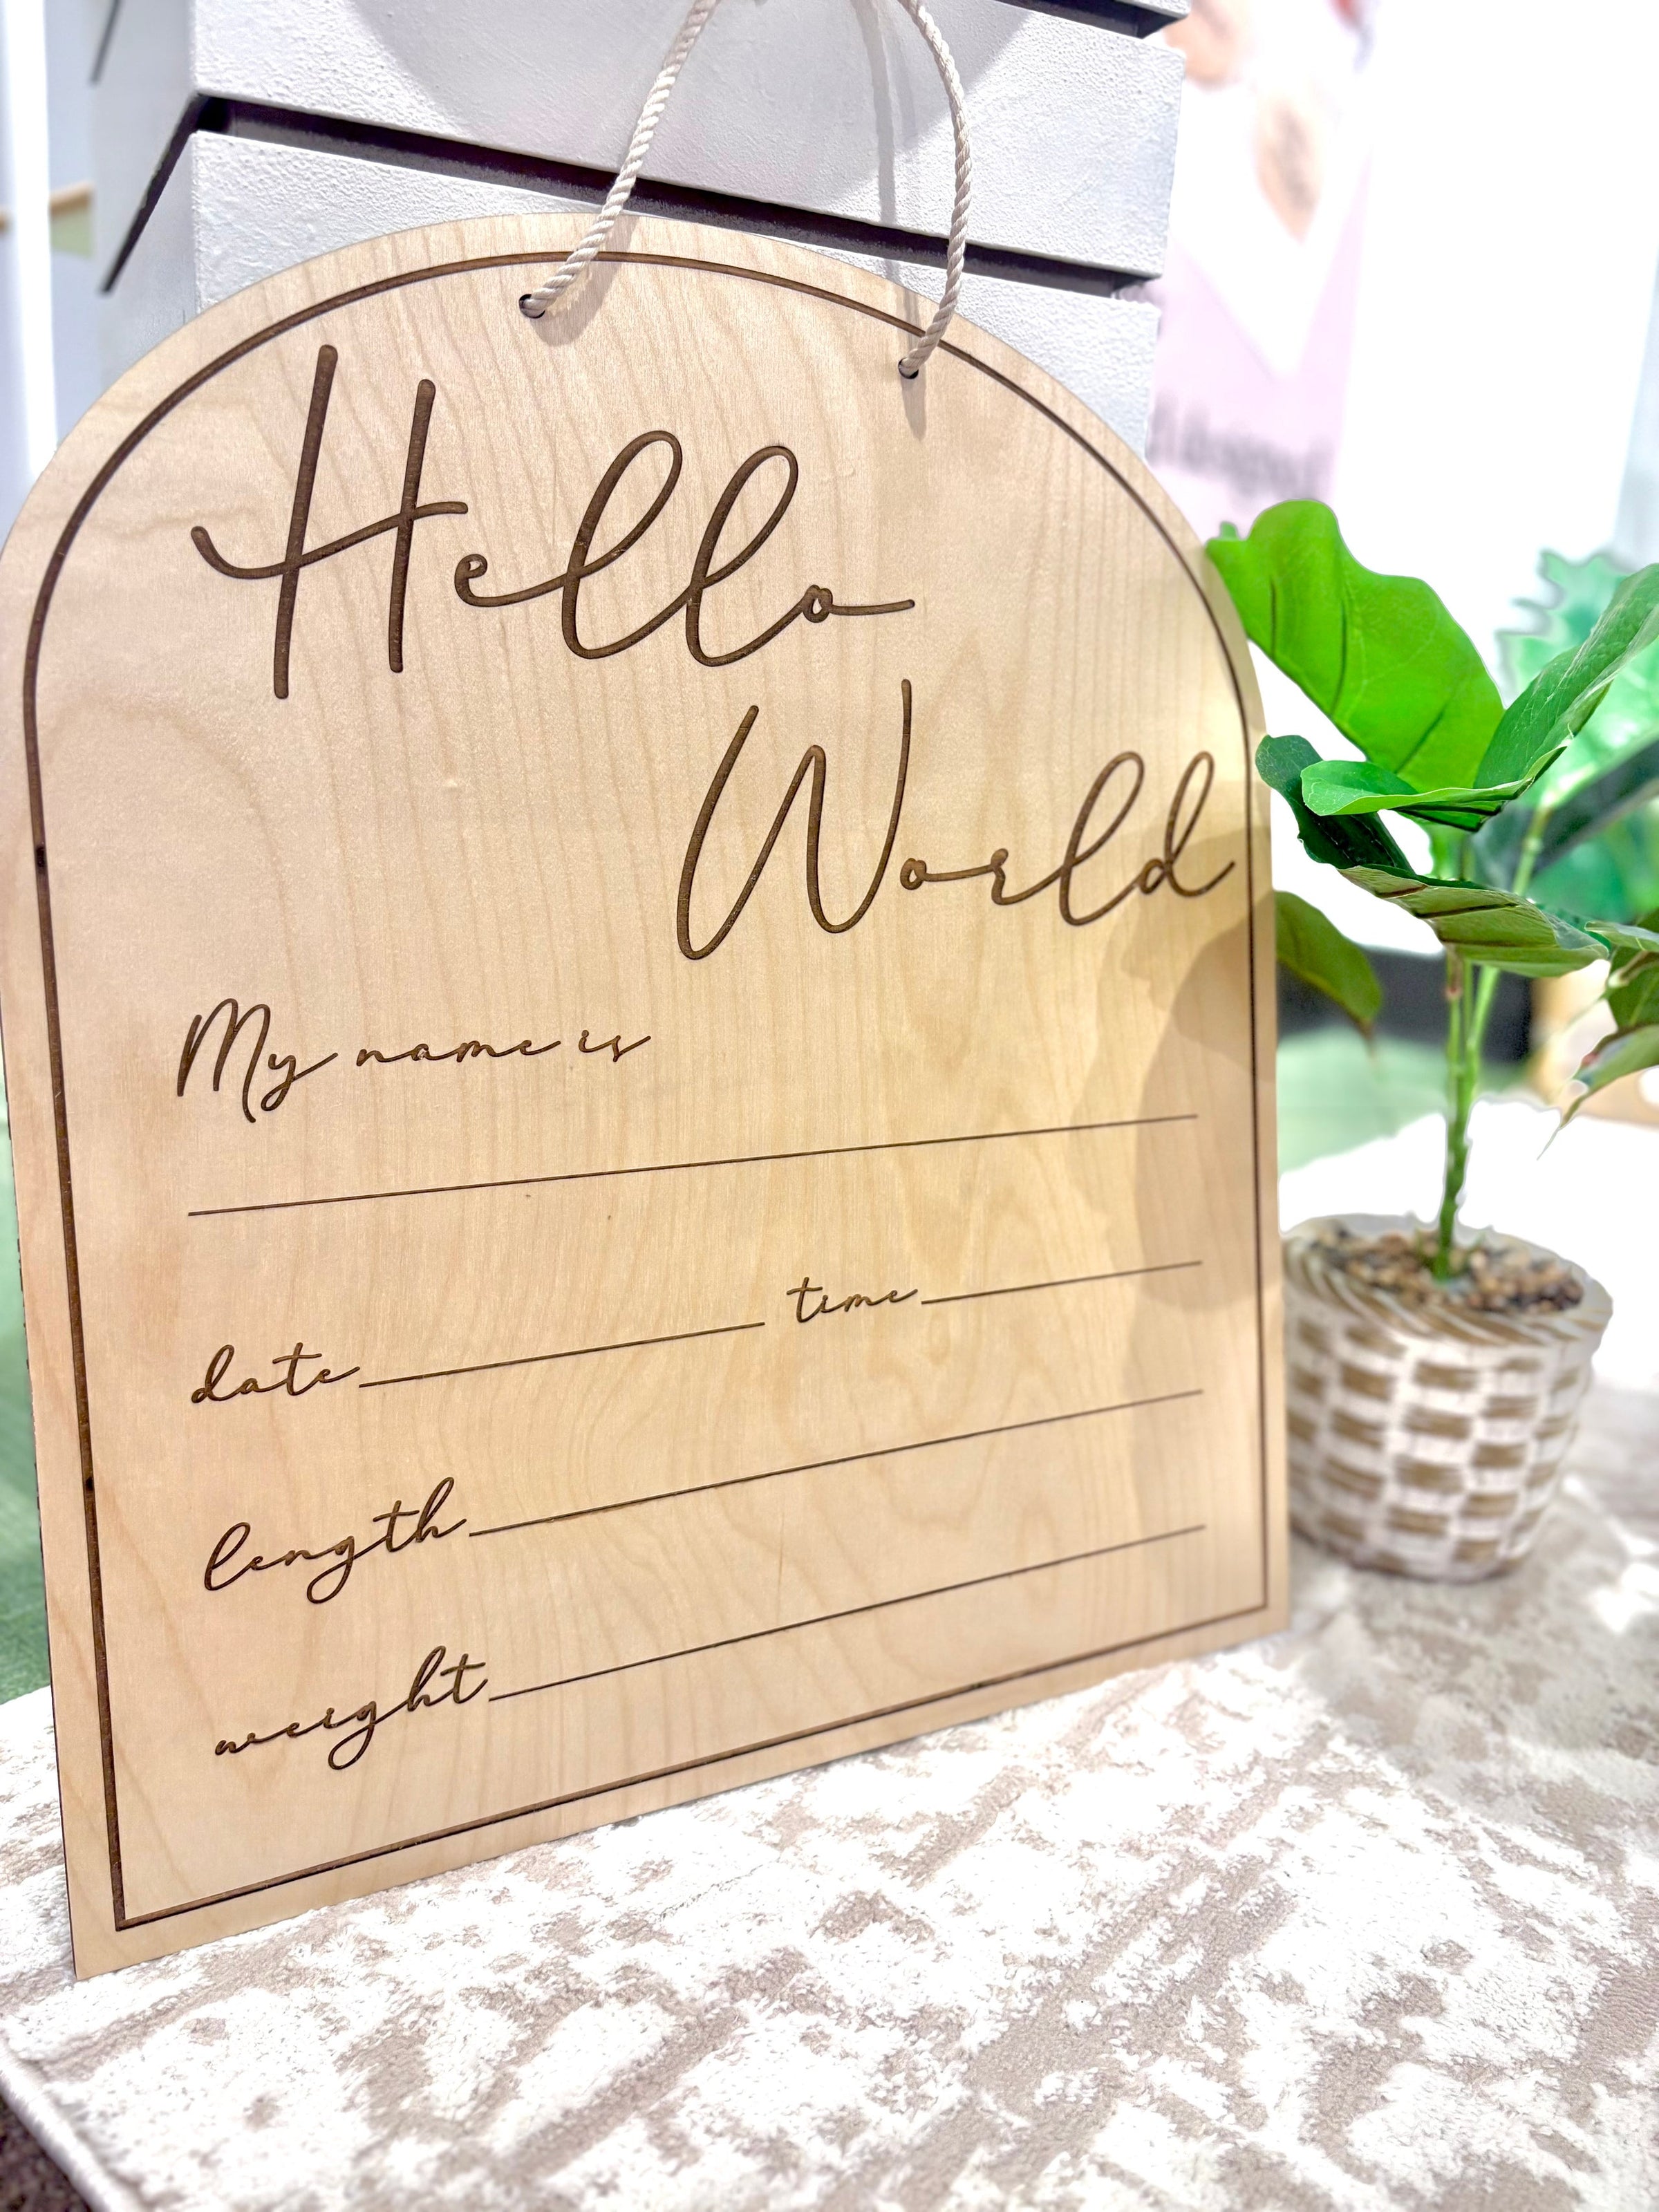 Hello
World
My name is
date time
length
weight